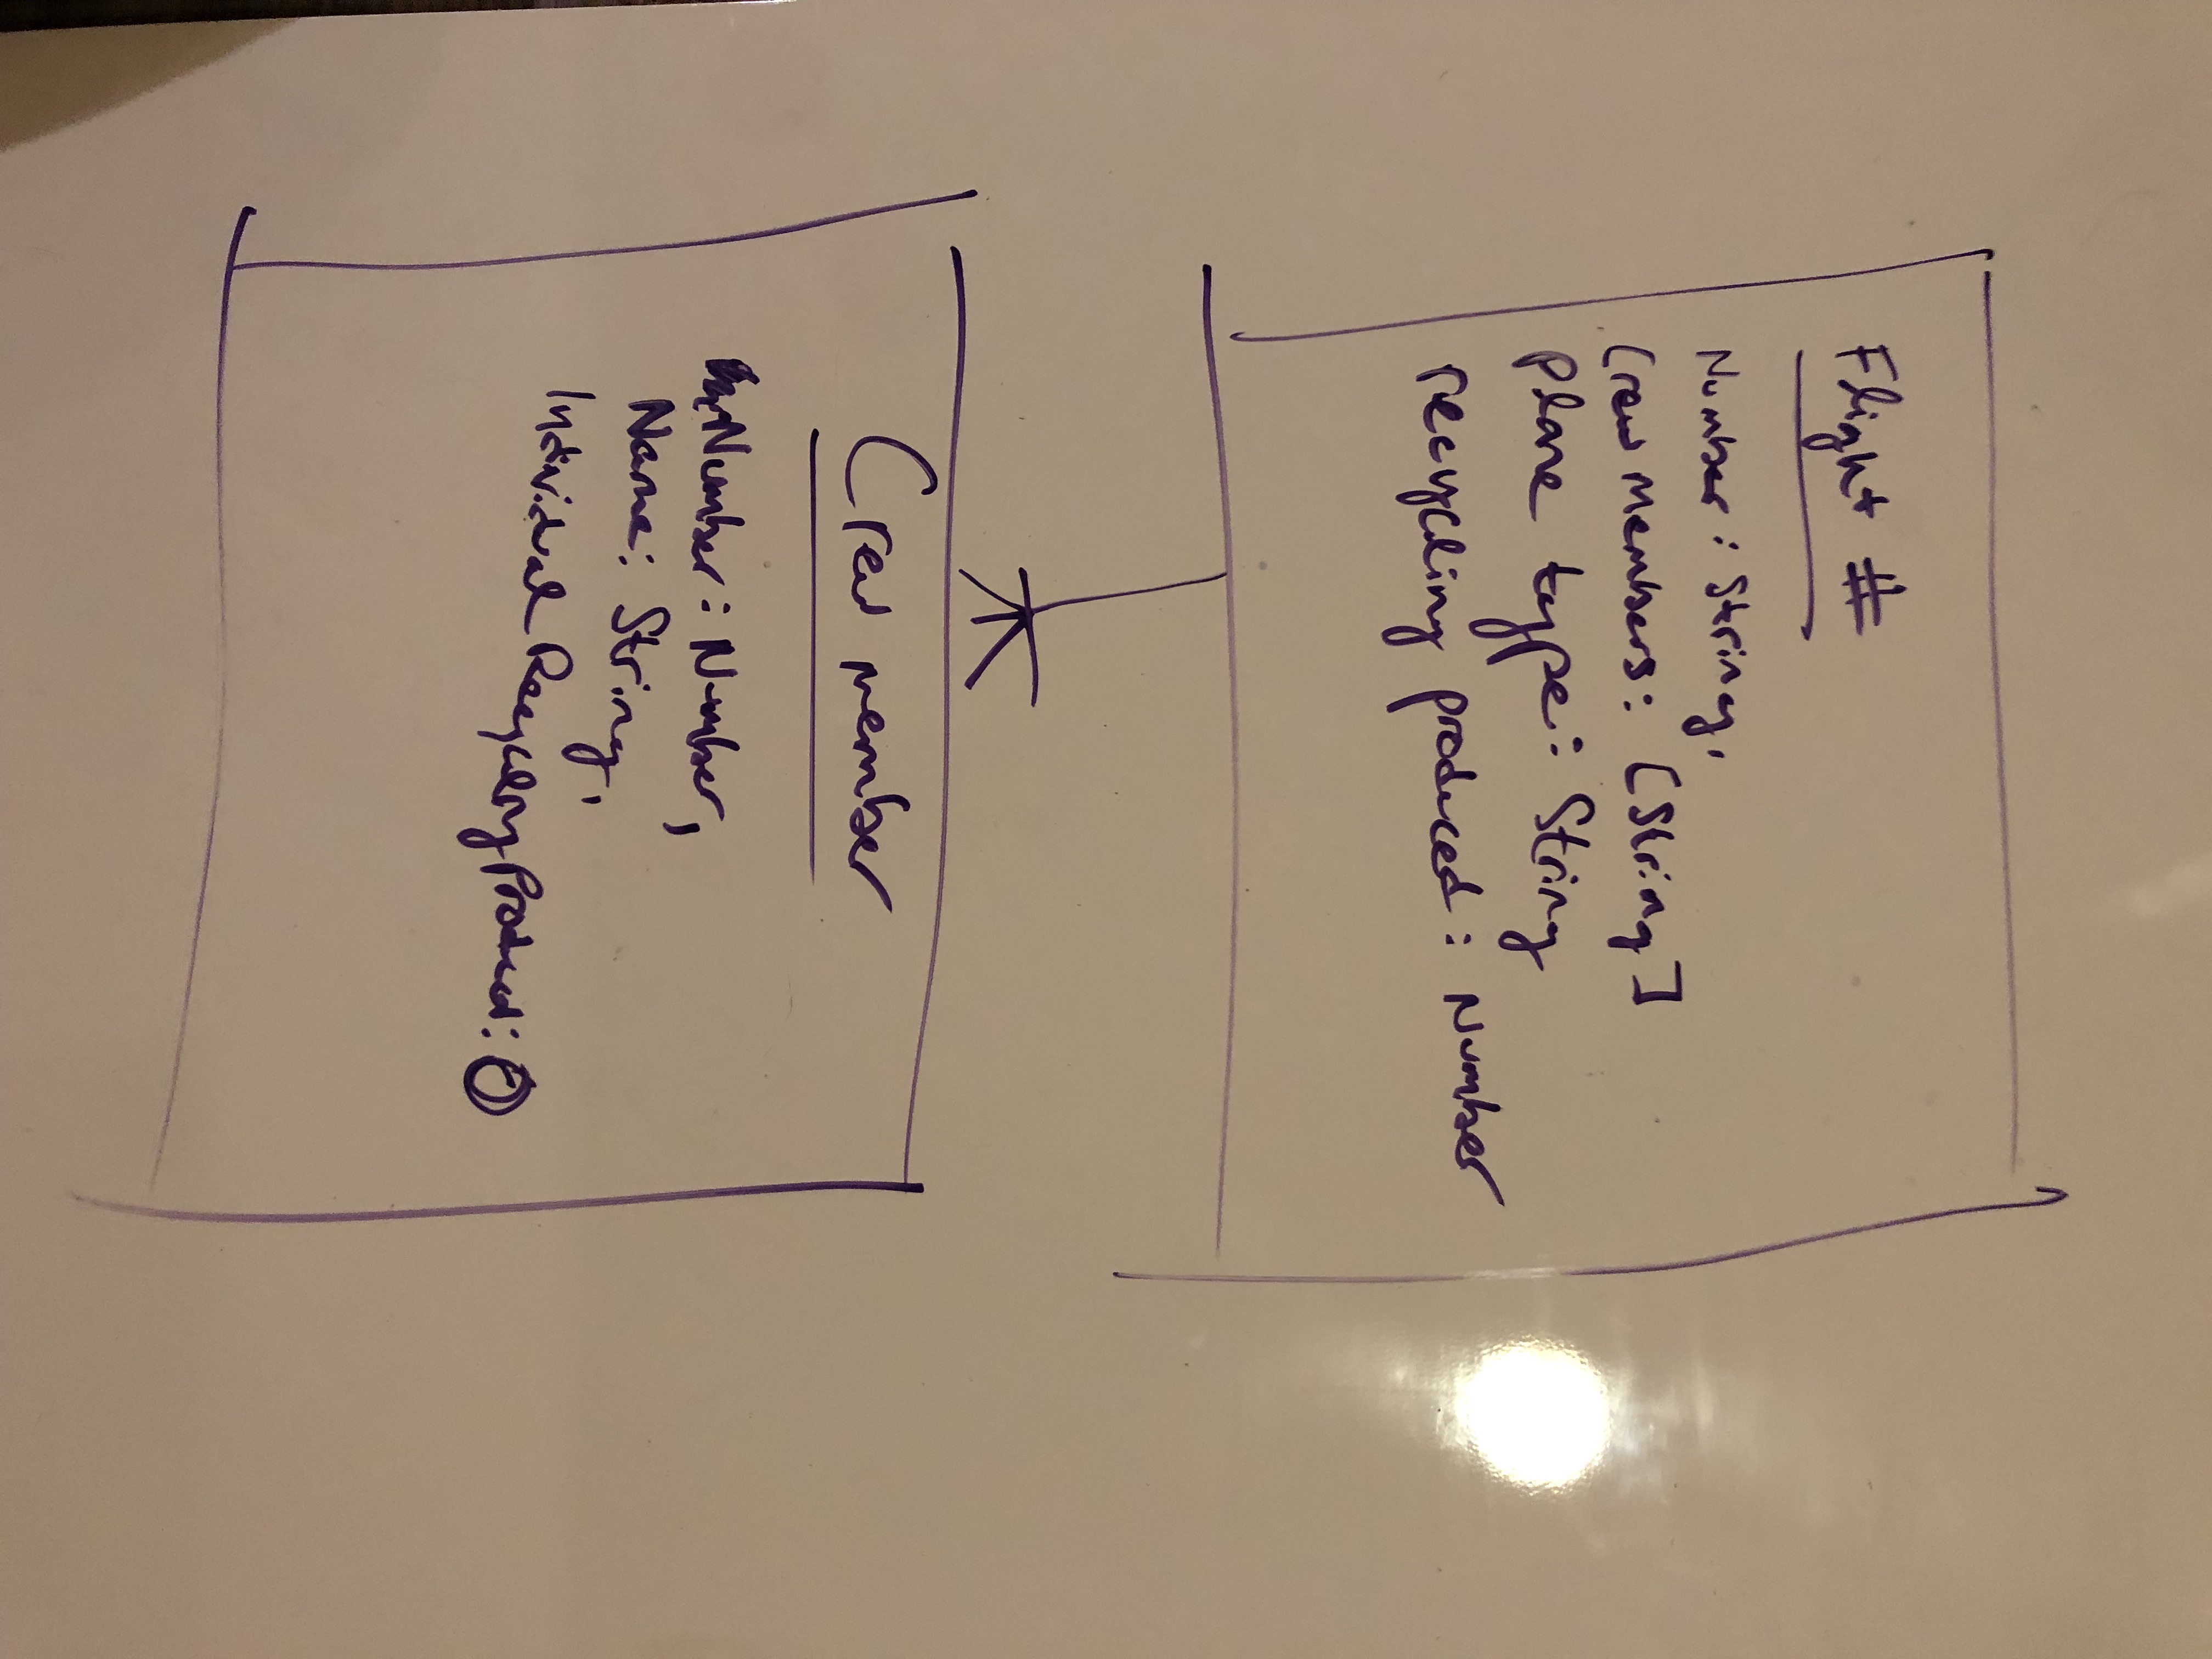 Flight #
Number: String,
Crew Members: [String]
Plane type: String
recycling produced: Number
Crew member
Number: Number,
Name: String,
Individual Recycling Produced: